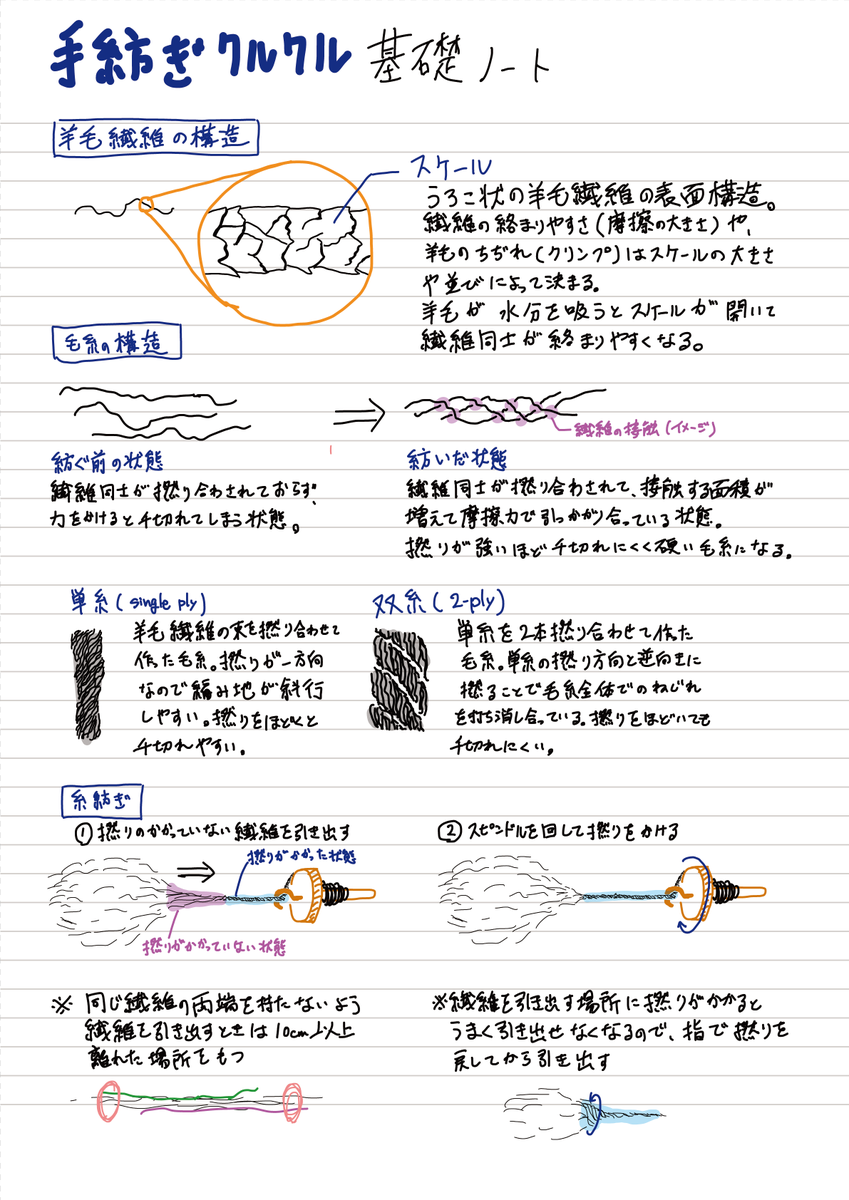 手紡ぎクルクル 基礎ノート
羊毛繊維の構造
スケール
うろこ状の羊毛繊維の表面構造。
繊維の絡まりやすさ(摩擦の大きさ)や、
羊毛のちぢれ(クリンプ)はスケールの大きさ
や並びによって決まる。
羊毛が水分を吸うとスケールが開いて
繊維同士が絡まりやすくなる。
毛糸の構造
繊維の接触(イメージ)
紡ぐ前の状態
繊維同士が撚り合わされておらず、
力をかけると千切れてしまう状態。
紡いだ状態
繊維同士が撚り合わされて、接触する面積が
増えて摩擦力で引っかかり合っている状態。
撚りが強いほど千切れにくく硬い毛糸になる。
単糸(single ply)
羊毛繊維の束を撚り合わせて
作った毛糸。撚りが一方向
なので編み地が斜行
しやすい。撚りをほどくと
千切れやすい。
双糸(2-ply)
単糸を2本撚り合わせて作った
毛糸。単糸の撚り方向と逆向きに
撚ることで毛糸全体でのねじれ
を打ち消し合っている。撚りをほどいても
千切れにくい。
糸紡ぎ
①撚りのかかっていない繊維を引き出す
撚りがかかった状態
撚りがかかっていない状態
②スピンドルを回して撚りをかける
※同じ繊維の両端を持たないよう
繊維を引き出すときは10cm以上
離れた場所をもつ
※繊維を引き出す場所に撚りがかかると
うまく引き出せなくなるので、指で撚りを
戻してから引き出す